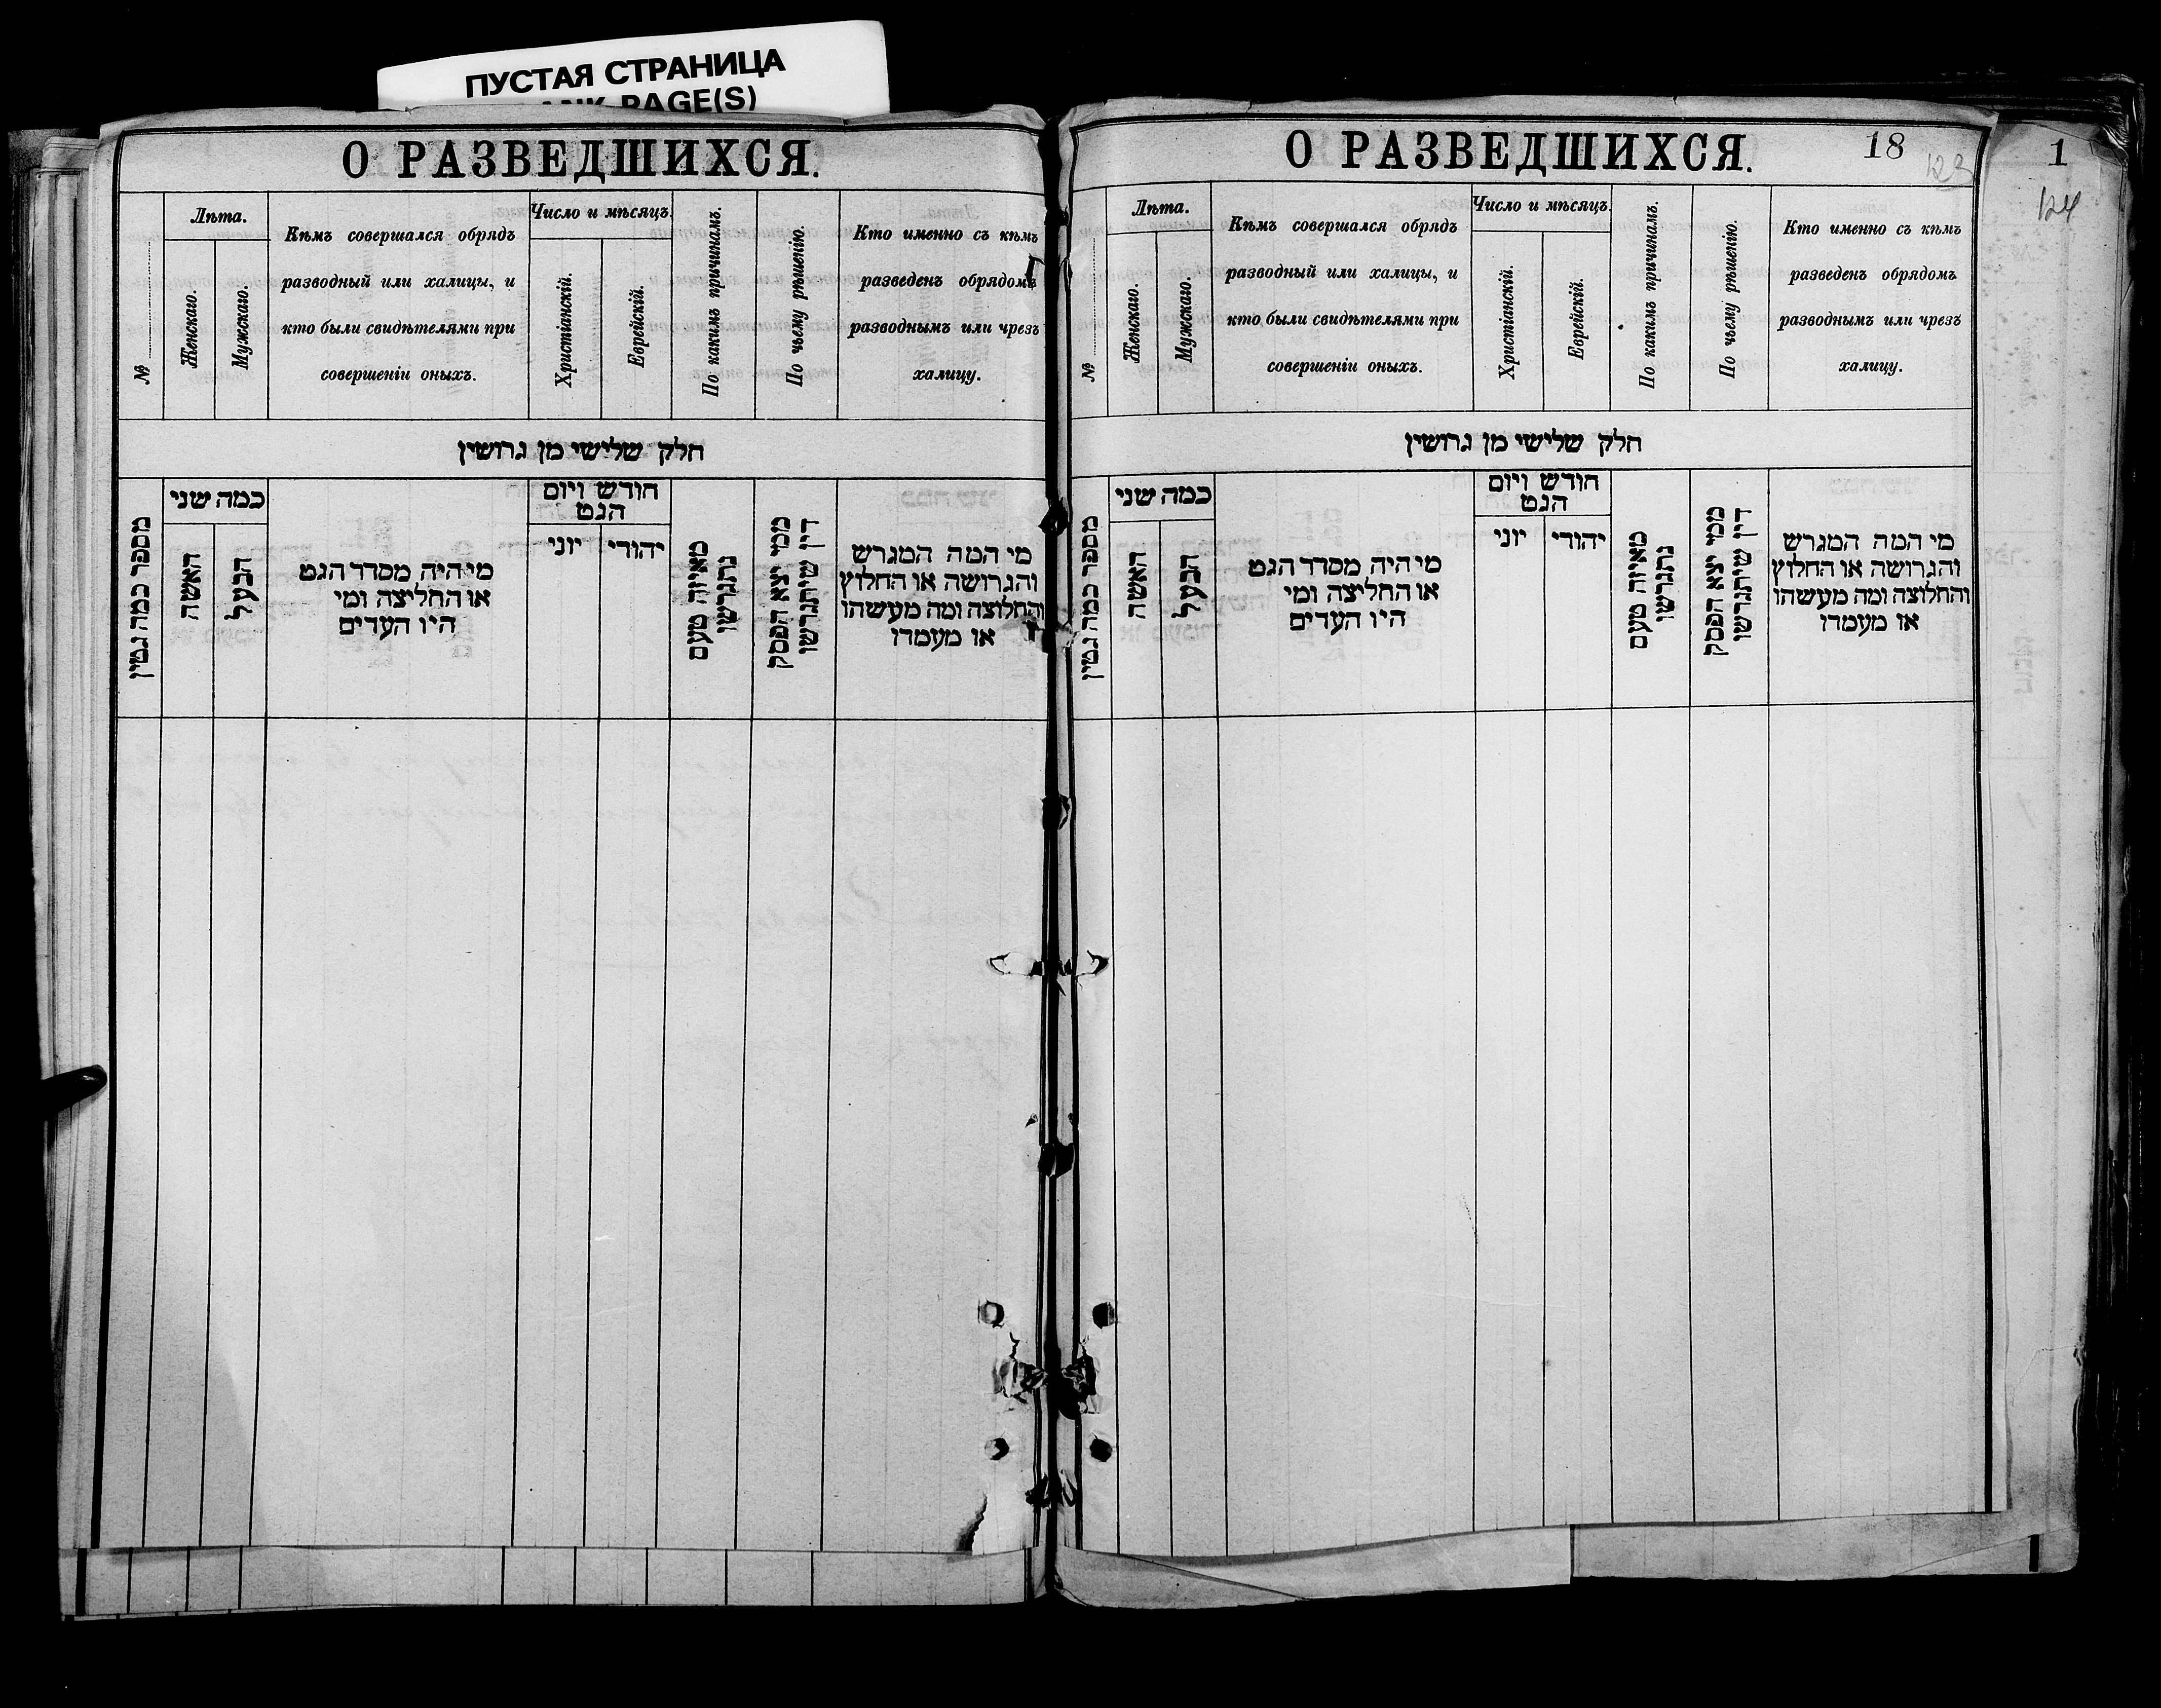 ПУСТАЯ СТРАНИЦА
PAGE(S)
О РАЗВЕДШИХСЯ.
№
Лѣта.
Женскаго.
Мужскаго.
Кѣмъ совершался обрядъ
разводный или халицы, и
кто были свидѣтелями при
совершеніи оныхъ.
Число и мѣсяцъ.
Христіанскій.
Еврейскій.
По какимъ причинамъ.
По чьему рѣшенію.
Кто именно съ кѣмъ
разведенъ обрядомъ
разводнымъ или чрезъ
халицу.
חלק שלישי מן גרושין
מספר כמה גטין
כמה שני
האשה
הבעל
מי היה מסדר הגט
או החליצה ומי
היו העדים
חודש ויום
הגט
יוני
יהודי
מאיזה טעם
נתגרשו
ממי יצא הפסק
דין שיתגרשו
מי המה המגרש
והגרושה או החלוץ
והחלוצה ומה מעשהו
או מעמדו
О РАЗВЕДШИХСЯ.
18
123
№
Лѣта.
Женскаго.
Мужскаго.
Кѣмъ совершался обрядъ
разводный или халицы, и
кто были свидѣтелями при
совершеніи оныхъ.
Число и мѣсяцъ.
Христіанскій.
Еврейскій.
По какимъ причинамъ.
По чьему рѣшенію.
Кто именно съ кѣмъ
разведенъ обрядомъ
разводнымъ или чрезъ
халицу.
חלק שלישי מן גרושין
מספר כמה גטין
כמה שני
האשה
הבעל
מי היה מסדר הגט
או החליצה ומי
היו העדים
חודש ויום
הגט
יוני
יהודי
מאיזה טעם
נתגרשו
ממי יצא הפסק
דין שיתגרשו
מי המה המגרש
והגרושה או החלוץ
והחלוצה ומה מעשהו
או מעמדו
1
124